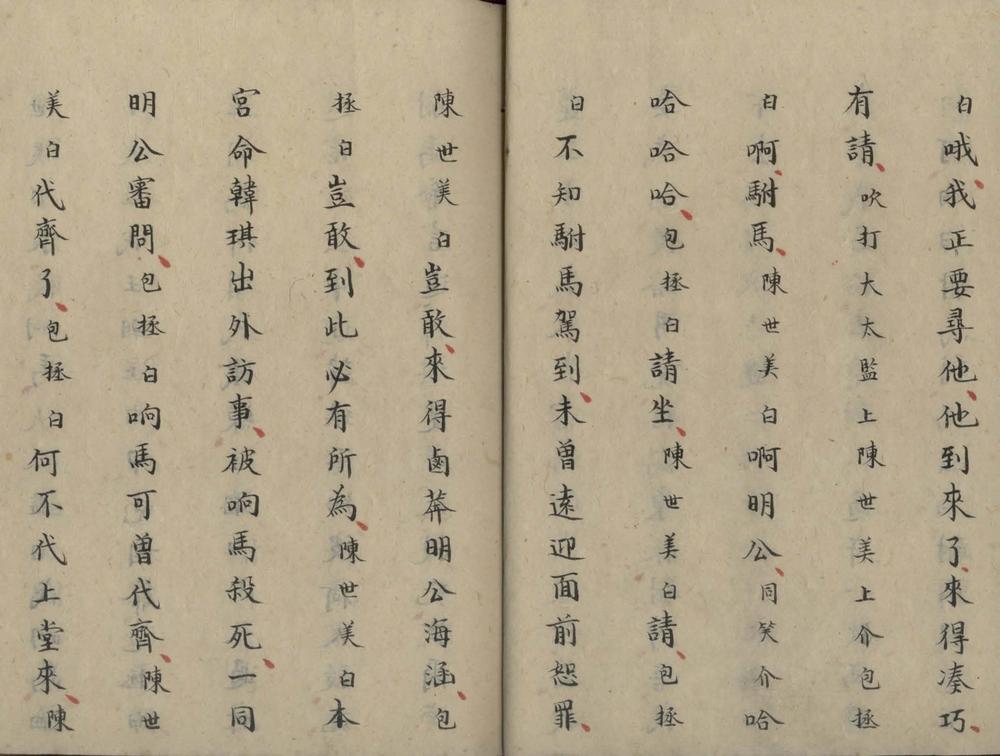 白哦我正要尋他、他到來了、來得湊巧、
有請、吹打大太監上陳世美上介包拯
白啊、駙馬、陳世美白啊明公、同笑介哈
哈哈哈、包拯白請坐、陳世美白請、包拯
白不知駙馬駕到、未曾遠迎面前恕罪、
陳世美白豈敢、來得鹵莽明公海涵、包
拯白豈敢、到此必有所為、陳世美白本
宮命韓琪出外訪事、被响馬殺死、一同
明公審問、包拯白响馬可曾代齊、陳世
美白代齊了、包拯白何不代上堂來、陳